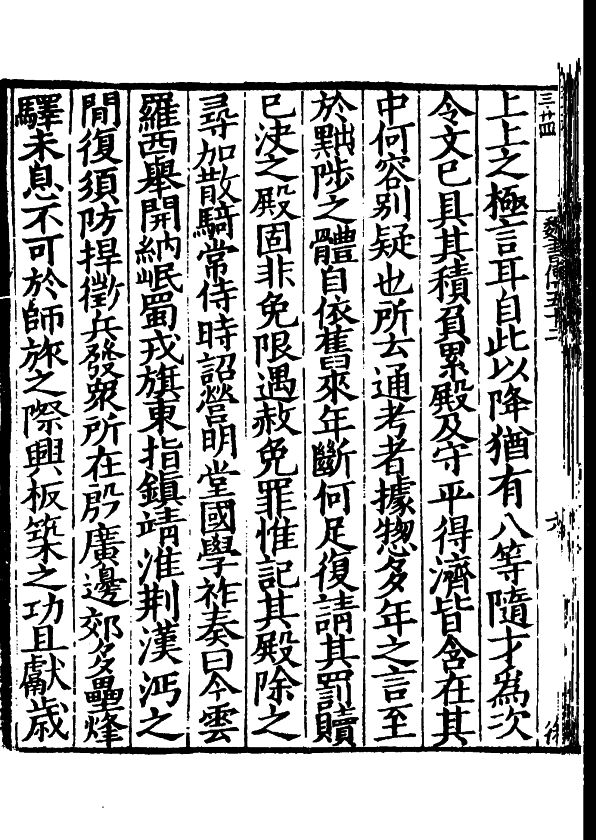 三·廿四
魏書傳五十二
上上之極言耳自此以降猶有八等隨才為次
令文已具其積負累殿及守平得濟皆含在其
中何容别疑也所云通考者據惣多年之言至
於黜陟之體自依舊來年斷何足復請其罰贖
已决之殿固非免限遇赦免罪惟記其殿除之
尋加散騎常侍時詔營明堂國學祚奏曰今雲
羅西舉開納岷蜀戎旗東指鎮靖淮荆漢沔之
閒復須防捍徵兵發衆所在殷廣邊郊多壘烽
驛未息不可於師旅之際興板築之功且獻歲